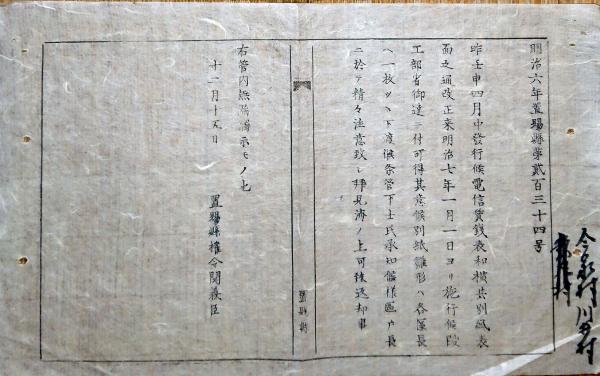 明治六年置賜縣第貳百三十四号
昨壬申四月中發行候電信賃錢表和橫共別紙表
面之通改正来明治七年一月一日ヨリ施行候段
工部省御達ニ付可得其意候別紙雛形ハ各區長
ヘ一枚ツヽ下渡候条管下士民承知候様區戸長
ニ於テ精々注意致シ拝見済ノ上可後返却事
右管内無漏揭示モノ也
十二月十五日
置賜縣權令関義臣
置賜縣
今泉村
川井村